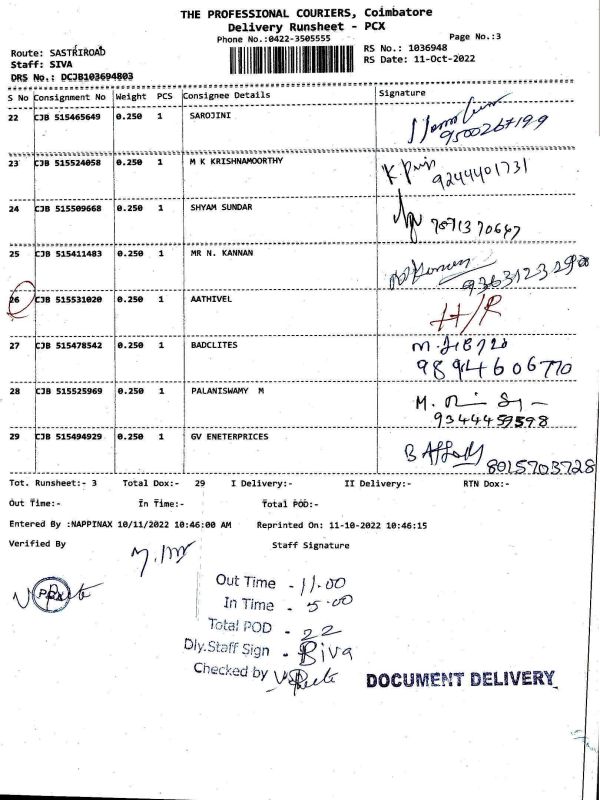 THE PROFESSIONAL COURIERS, Coimbatore
Delivery Runsheet - PCX
Phone No.:0422-3505555
Page No.:3
Route: SASTRIROAD
RS No.: 1036948
Staff: SIVA
RS Date: 11-Oct-2022
DRS No.: DCJB103694803
S No Consignment No Weight PCS Consignee Details Signature
22 CJB 515465649 0.250 1 SAROJINI
9500267199
23 CJB 515524058 0.250 1 M K KRISHNAMOORTHY
9244401731
24 CJB 515509668 0.250 1 SHYAM SUNDAR
7871370647
25 CJB 515411483 0.250 1 MR N. KANNAN
26 CJB 515531020 0.250 1 AATHIVEL H/R
27 CJB 515478542 0.250 1 BADCLITES
9894606770
28 CJB 515525969 0.250 1 PALANISWAMY M
29 CJB 515494929 0.250 1 GV ENETERPRICES
8015703728
Tot. Runsheet:- 3 Total Dox:- 29 I Delivery:- II Delivery:- RTN Dox:-
Out Time:- In Time:- Total POD:-
Entered By :NAPPINAX 10/11/2022 10:46:00 AM Reprinted On: 11-10-2022 10:46:15
Verified By Staff Signature
Out Time - 11.00
In Time - 5.00
Total POD - 22
Dly.Staff Sign - Siva
Checked by
DOCUMENT DELIVERY